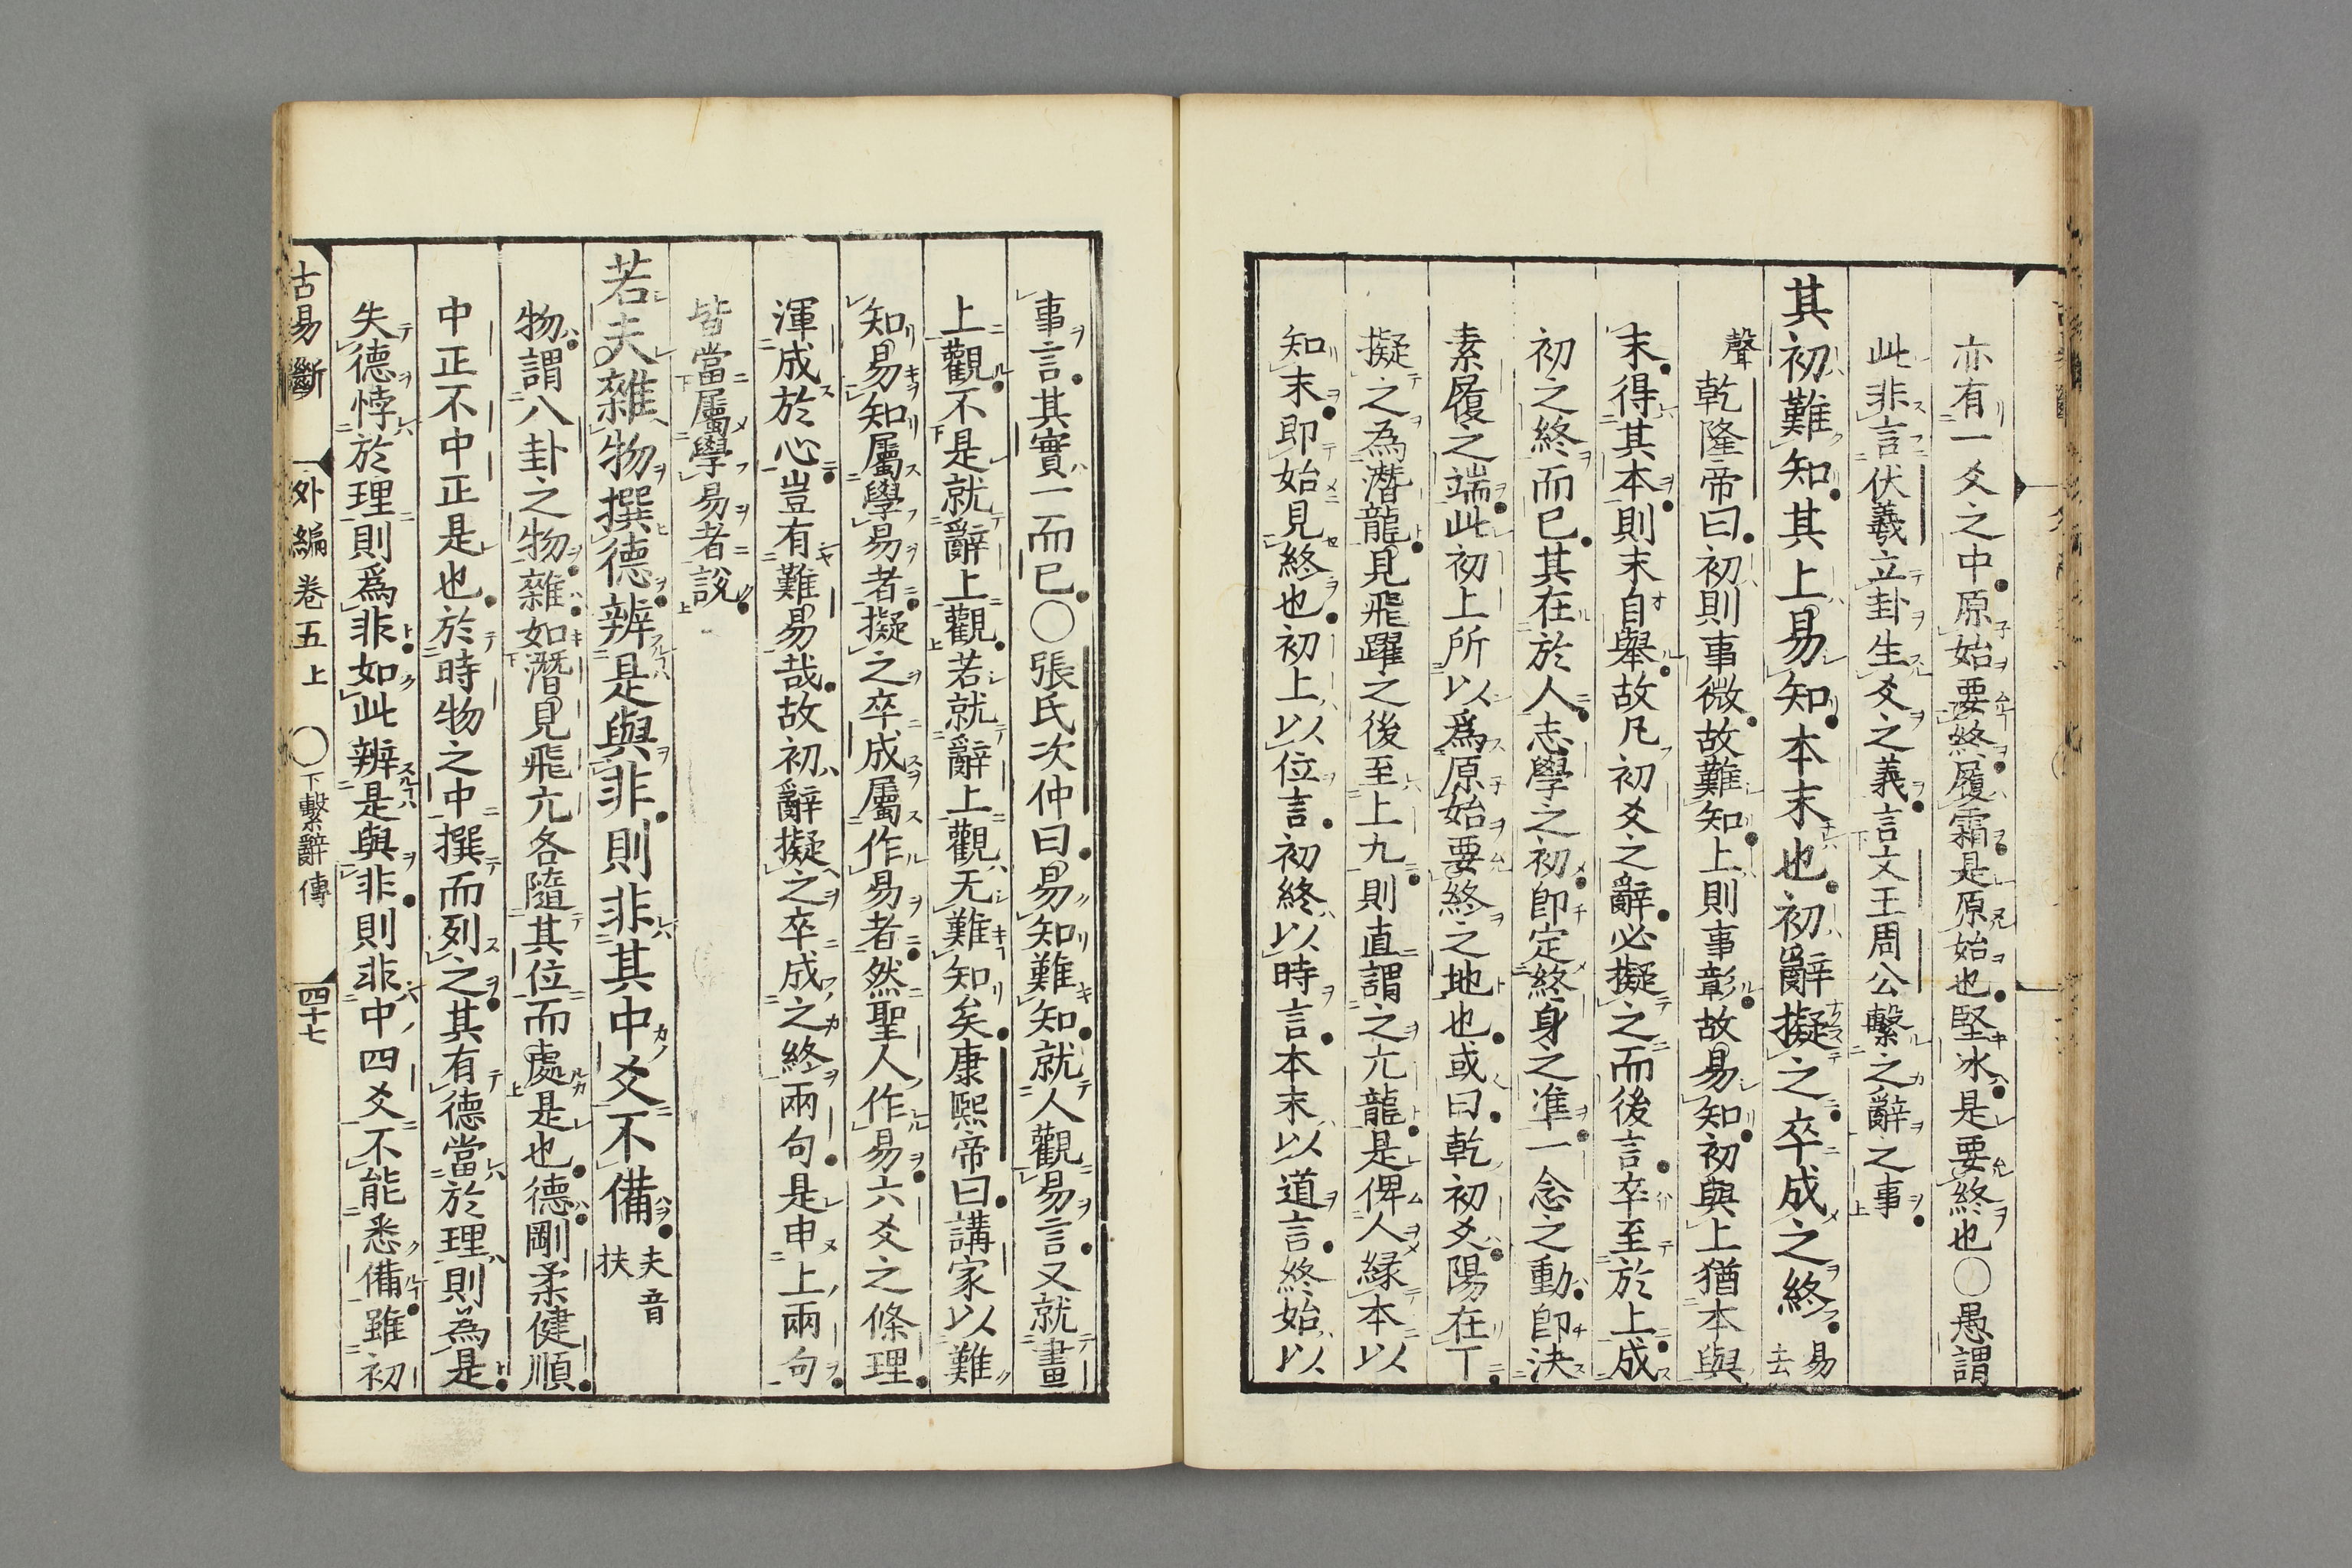 亦有一爻之中原始要終履霜是原始也堅冰是要終也○愚謂
此非言伏羲立卦生爻之義言文王周公繫之辭之事
其初難知其上易知本末也初辭擬之卒成之終易去
聲乾隆帝曰初則事微故難知上則事彰故易知初與上猶本與
末得其本則末自舉故凡初爻之辭必擬之而後言卒至於上成
初之終而已其在於人志學之初即定終身之準一念之動即決
素履之端此初上所以爲原始要終之地也或曰乾初爻陽在下
擬之為潛龍見飛躍之後至上九則直謂之亢龍是俾人緣本以
知末即始見終也初上以位言初終以時言本末以道言終始以
事言其實一而已○張氏次仲曰易知難知就人觀易言又就畫
上觀不是就辭上觀若就辭上觀无難知矣康熙帝曰講家以難
知易知屬學易者擬之卒成屬作易者然聖人作易六爻之條理
渾成於心豈有難易哉故初辭擬之卒成之終兩句是申上兩句
皆當屬學易者說
若夫雜物撰德辨是與非則非其中爻不備夫音扶
物謂八卦之物雜如潛見飛亢各隨其位而處是也德剛柔健順
中正不中正是也於時物之中撰而列之其有德當於理則為是
失德悖於理則爲非如此辨是與非則非中四爻不能悉備雖初
古易斷 外編卷五上 ○下繫辭傳 四十七